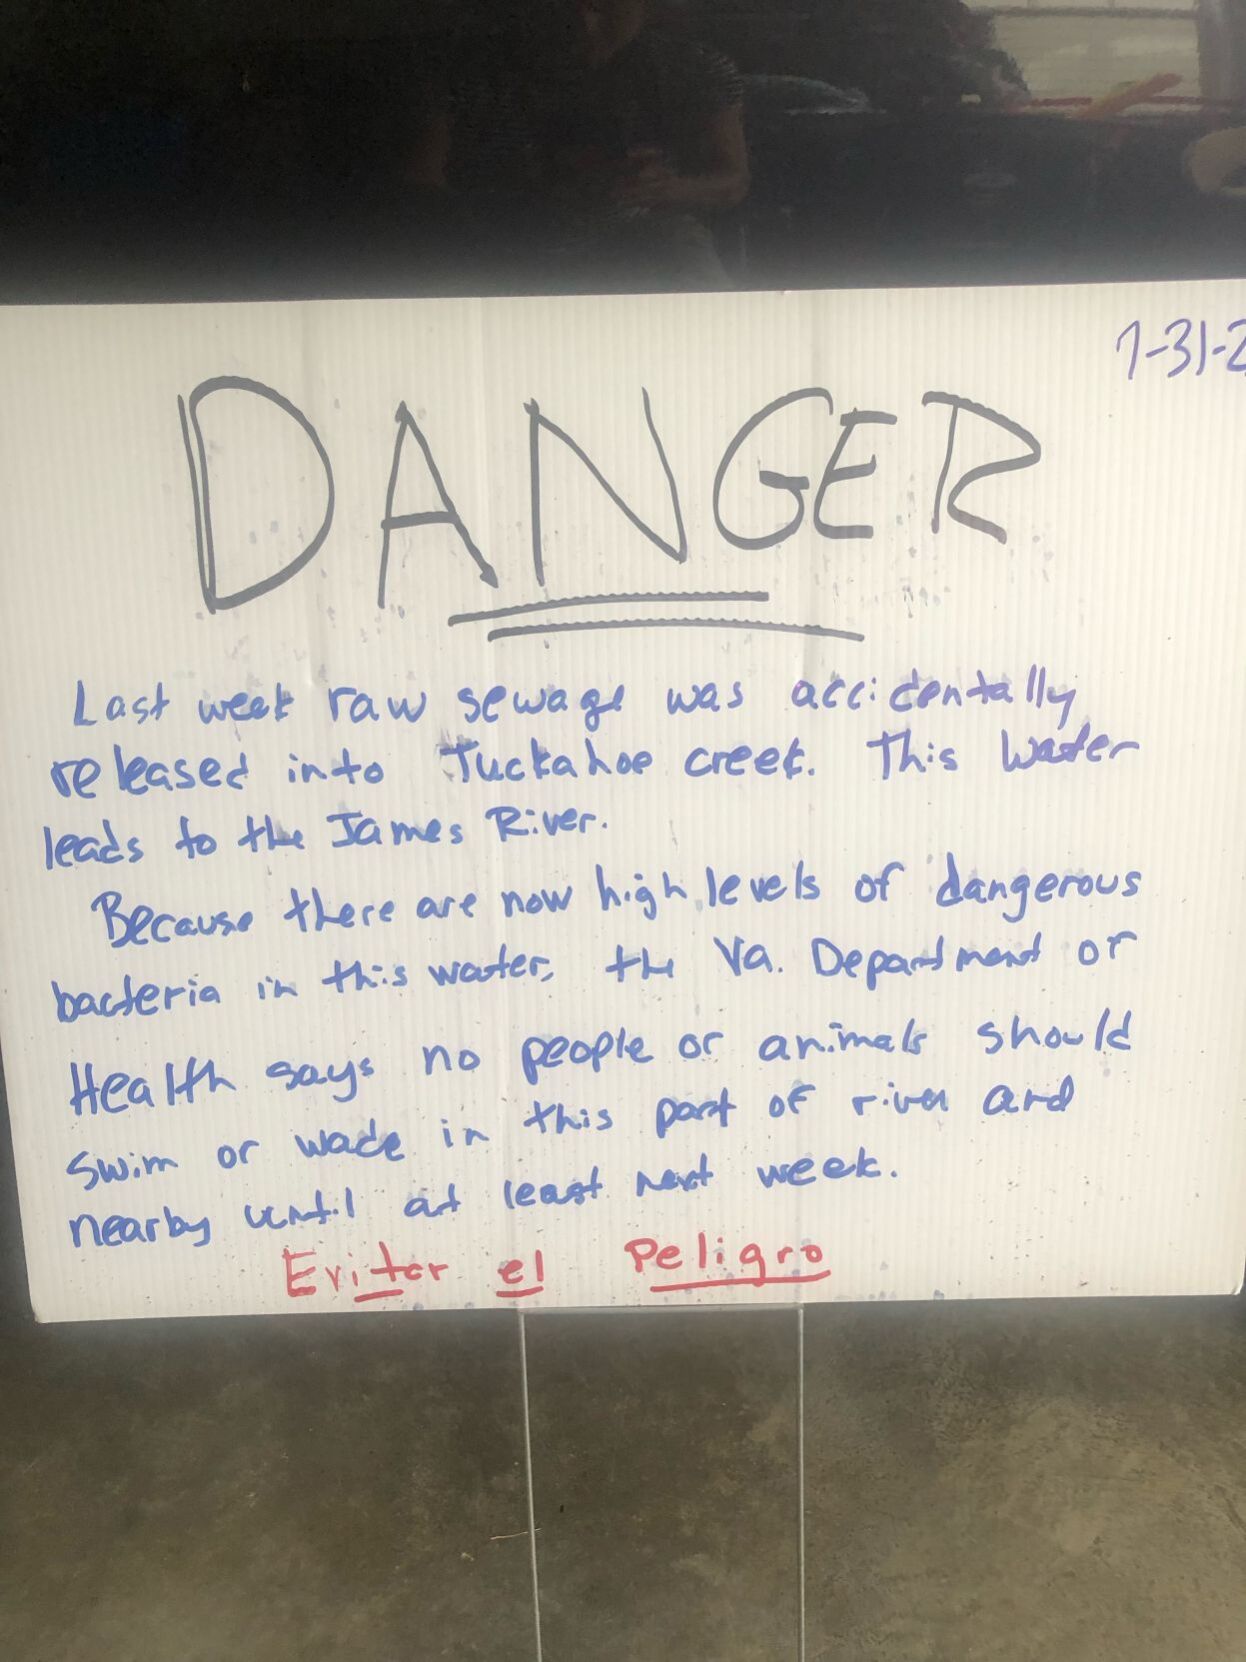 7-31-2
DANGER
Last week raw sewage was accidentally
released into Tuckahoe creek. This water
leads to the James River.
Because there are now high levels of dangerous
bacteria in this water, the Va. Department or
Health says no people or animals should
swim or wade in this part of river and
nearby until at least next week.
Evitar el Peligro